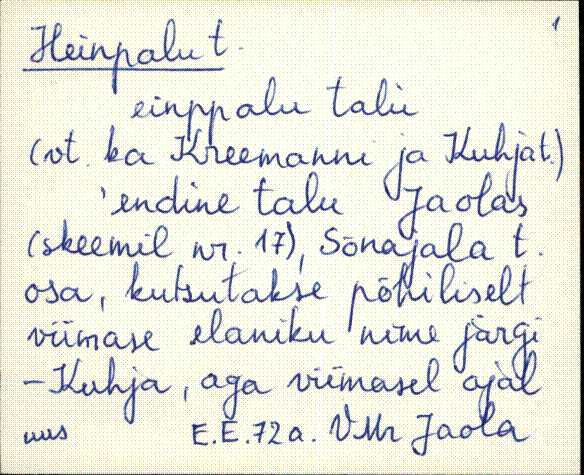 1
Heinpalu t.
einppalu talu
(vt. ka Kreemanni ja Kuhjat.)
'endine talu Jaolas
(skeemil nr. 17), Sõnajala t.
osa, kutsutakse põhiliselt
viimase elaniku nime järgi
– Kuhja, aga viimasel ajal
uus E.E. 72 a. VMr Jaola